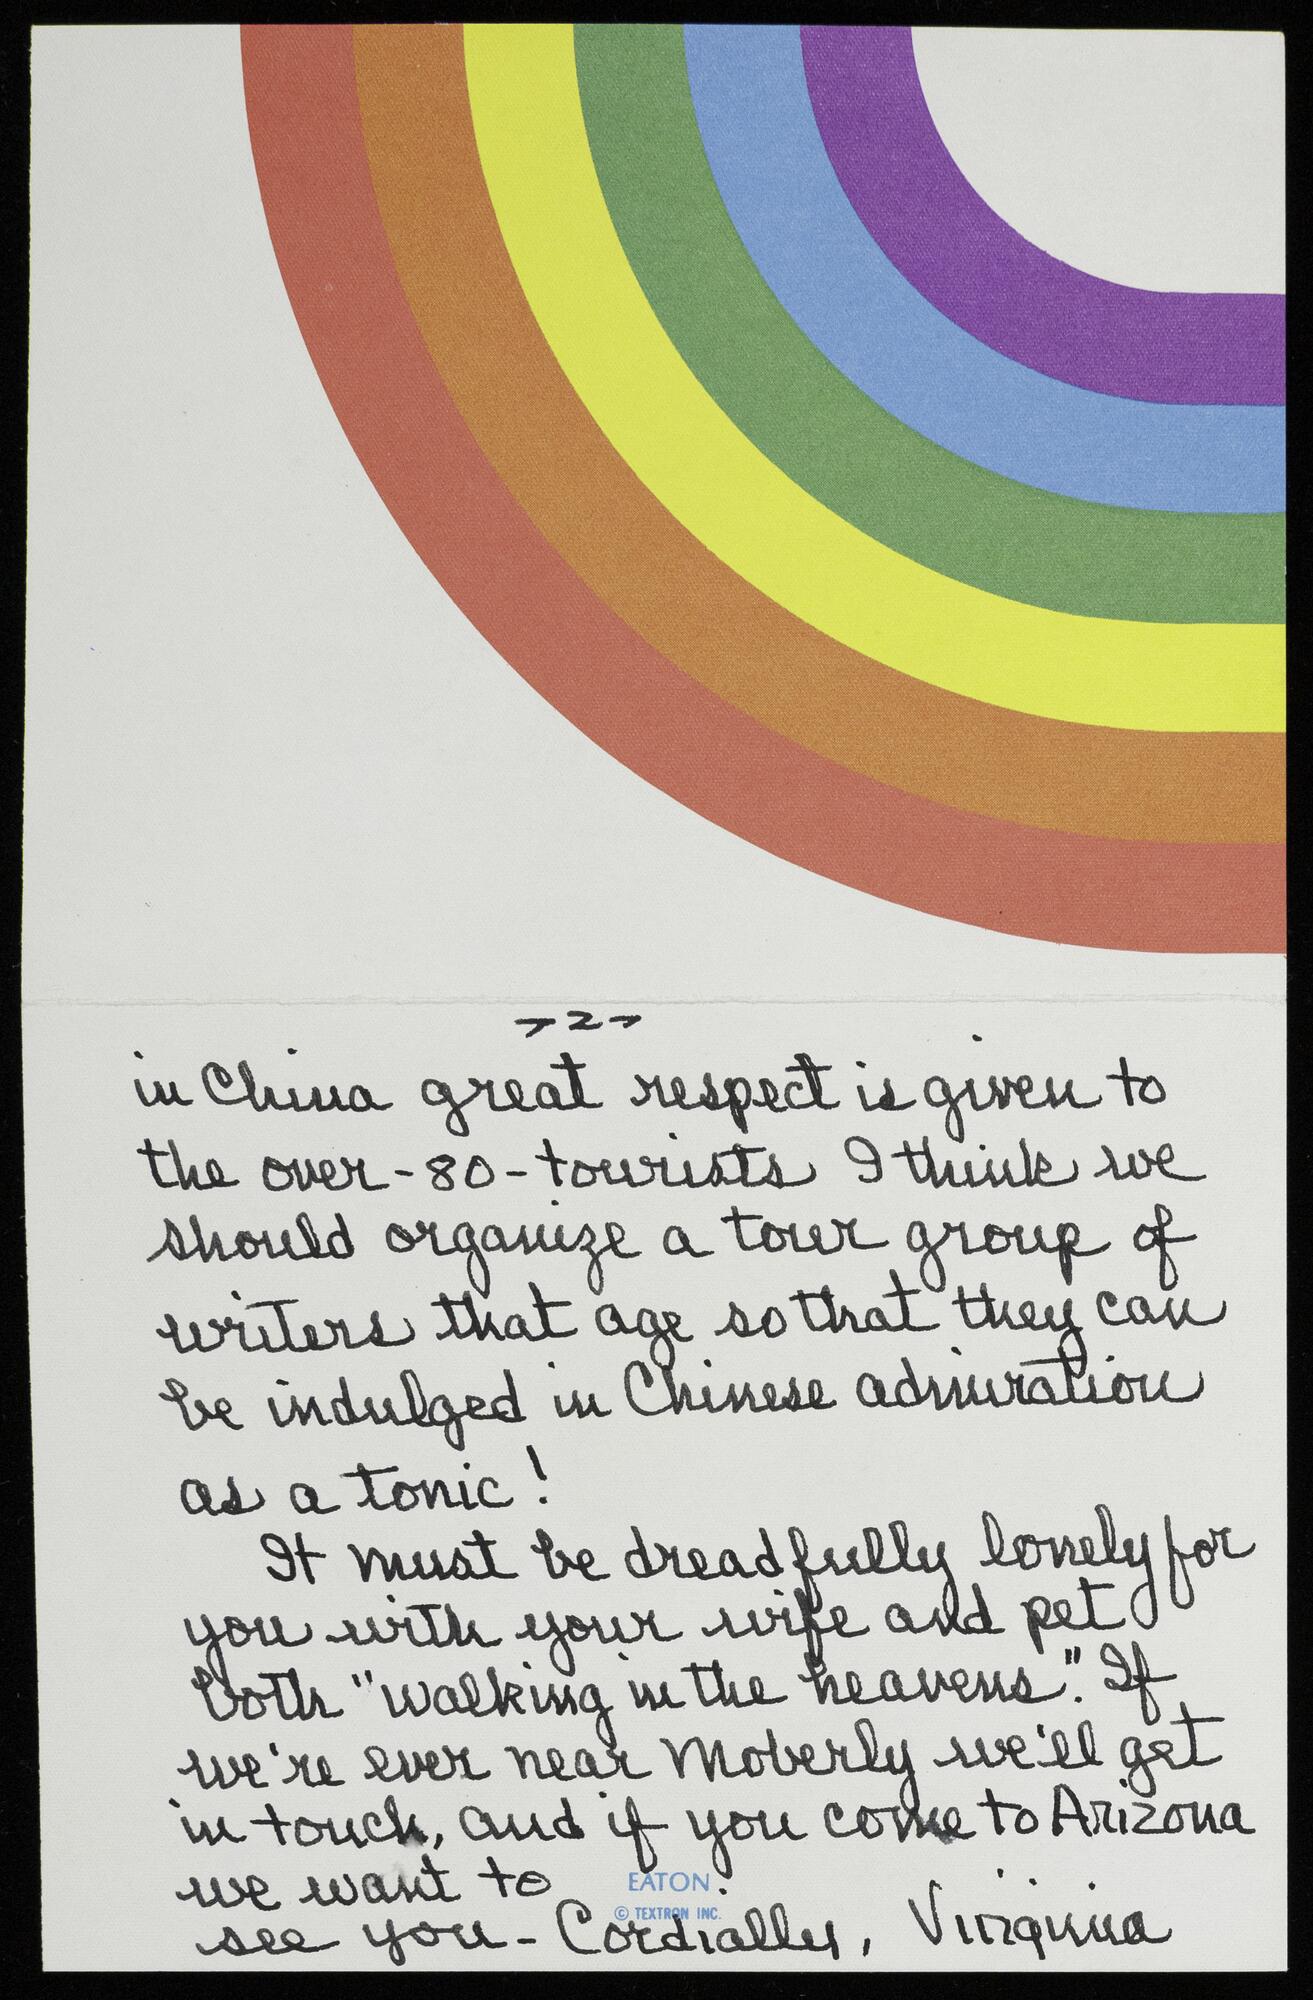 -2-
in China great respect is given to
the over-80-tourists I think we
should organize a tour group of
writers that age so that they can
be indulged in Chinese admiration
as a tonic!
It must be dreadfully lonely for
you with your wife and pet
both "walking in the heavens". If
we're ever near Moberly we'll get
in touch, and if you come to Arizona
we want to
EATON
© TEXTRON INC.
see you - Cordially, Virginia